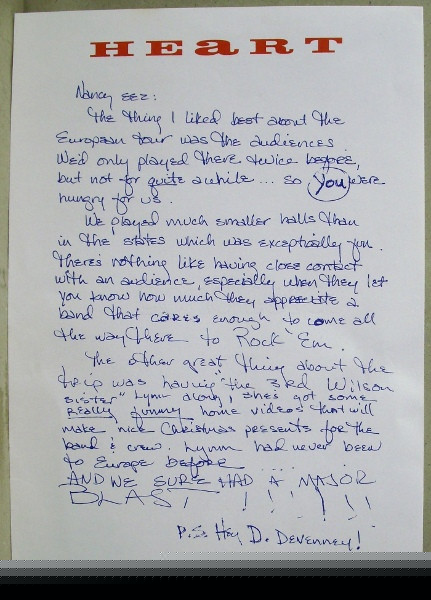 HEART
Nancy sez:
The thing I liked best about the
European tour was the audiences.
We'd only played there twice before,
but not for quite awhile... so you were
hungry for us.
We played much smaller halls than
in the states which was exceptionally fun.
There's nothing like having close contact
with an audience, especially when they let
you know how much they appreciate a
band that cares enough to come all
the way there to Rock 'Em.
The other great thing about the
trip was having "the 3rd Wilson
sister" Lynn along, she's got some
really funny home videos that will
make nice Christmas presents for the
band & crew. Lynn had never been
to Europe before
AND WE SURE HAD A MAJOR
BLAST! ! ! ! ! !
P.S. Hey, D. Devenney!